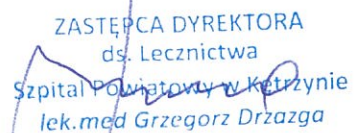 ZASTĘPCA DYREKTORA
ds. Lecznictwa
Szpital Powiatowy w Kętrzynie
lek.med Grzegorz Drzazga